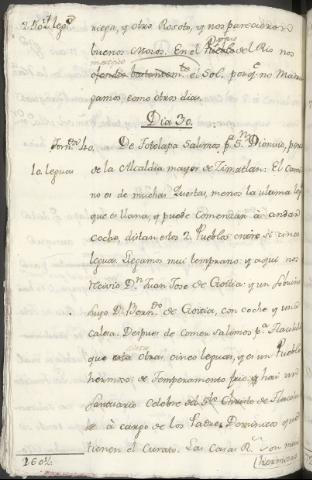 riega, y otro Rosoto, y nos parecieron
buenos Mozos. En el Pueblo del Rio nos
el Sol, porq.e no Madru
gamos como otros dias.
Dia 30.
Jorn.da 40. De Totolapa Salimos p.a S.n Dionicio, 
10. leguas de la Alcaldia mayor de Zimatlan: El Cami
no es de muchas Questas, menos la ultima leg
que es llana, y puede Comenzar à andar
coche, distan estos 2. Pueblos entre si cinco
leguas. Llegamos mui temprano, y aqui nos
D.n Juan Jose de y un Sobrino
hijo D. Bern.do de con coche y una
calesa. Despues de Comer salimos p.a Tlacolula
que esta otras cinco leguas, y es un Pueblo
hermoso de Temperamento frio, y hai un
Santuario Celebre del S.to Christo de Tlacolu
à cargo de los Padres Dominicos que
tienen el Curato. Las Casas R.s son mui
(hermosas
260½